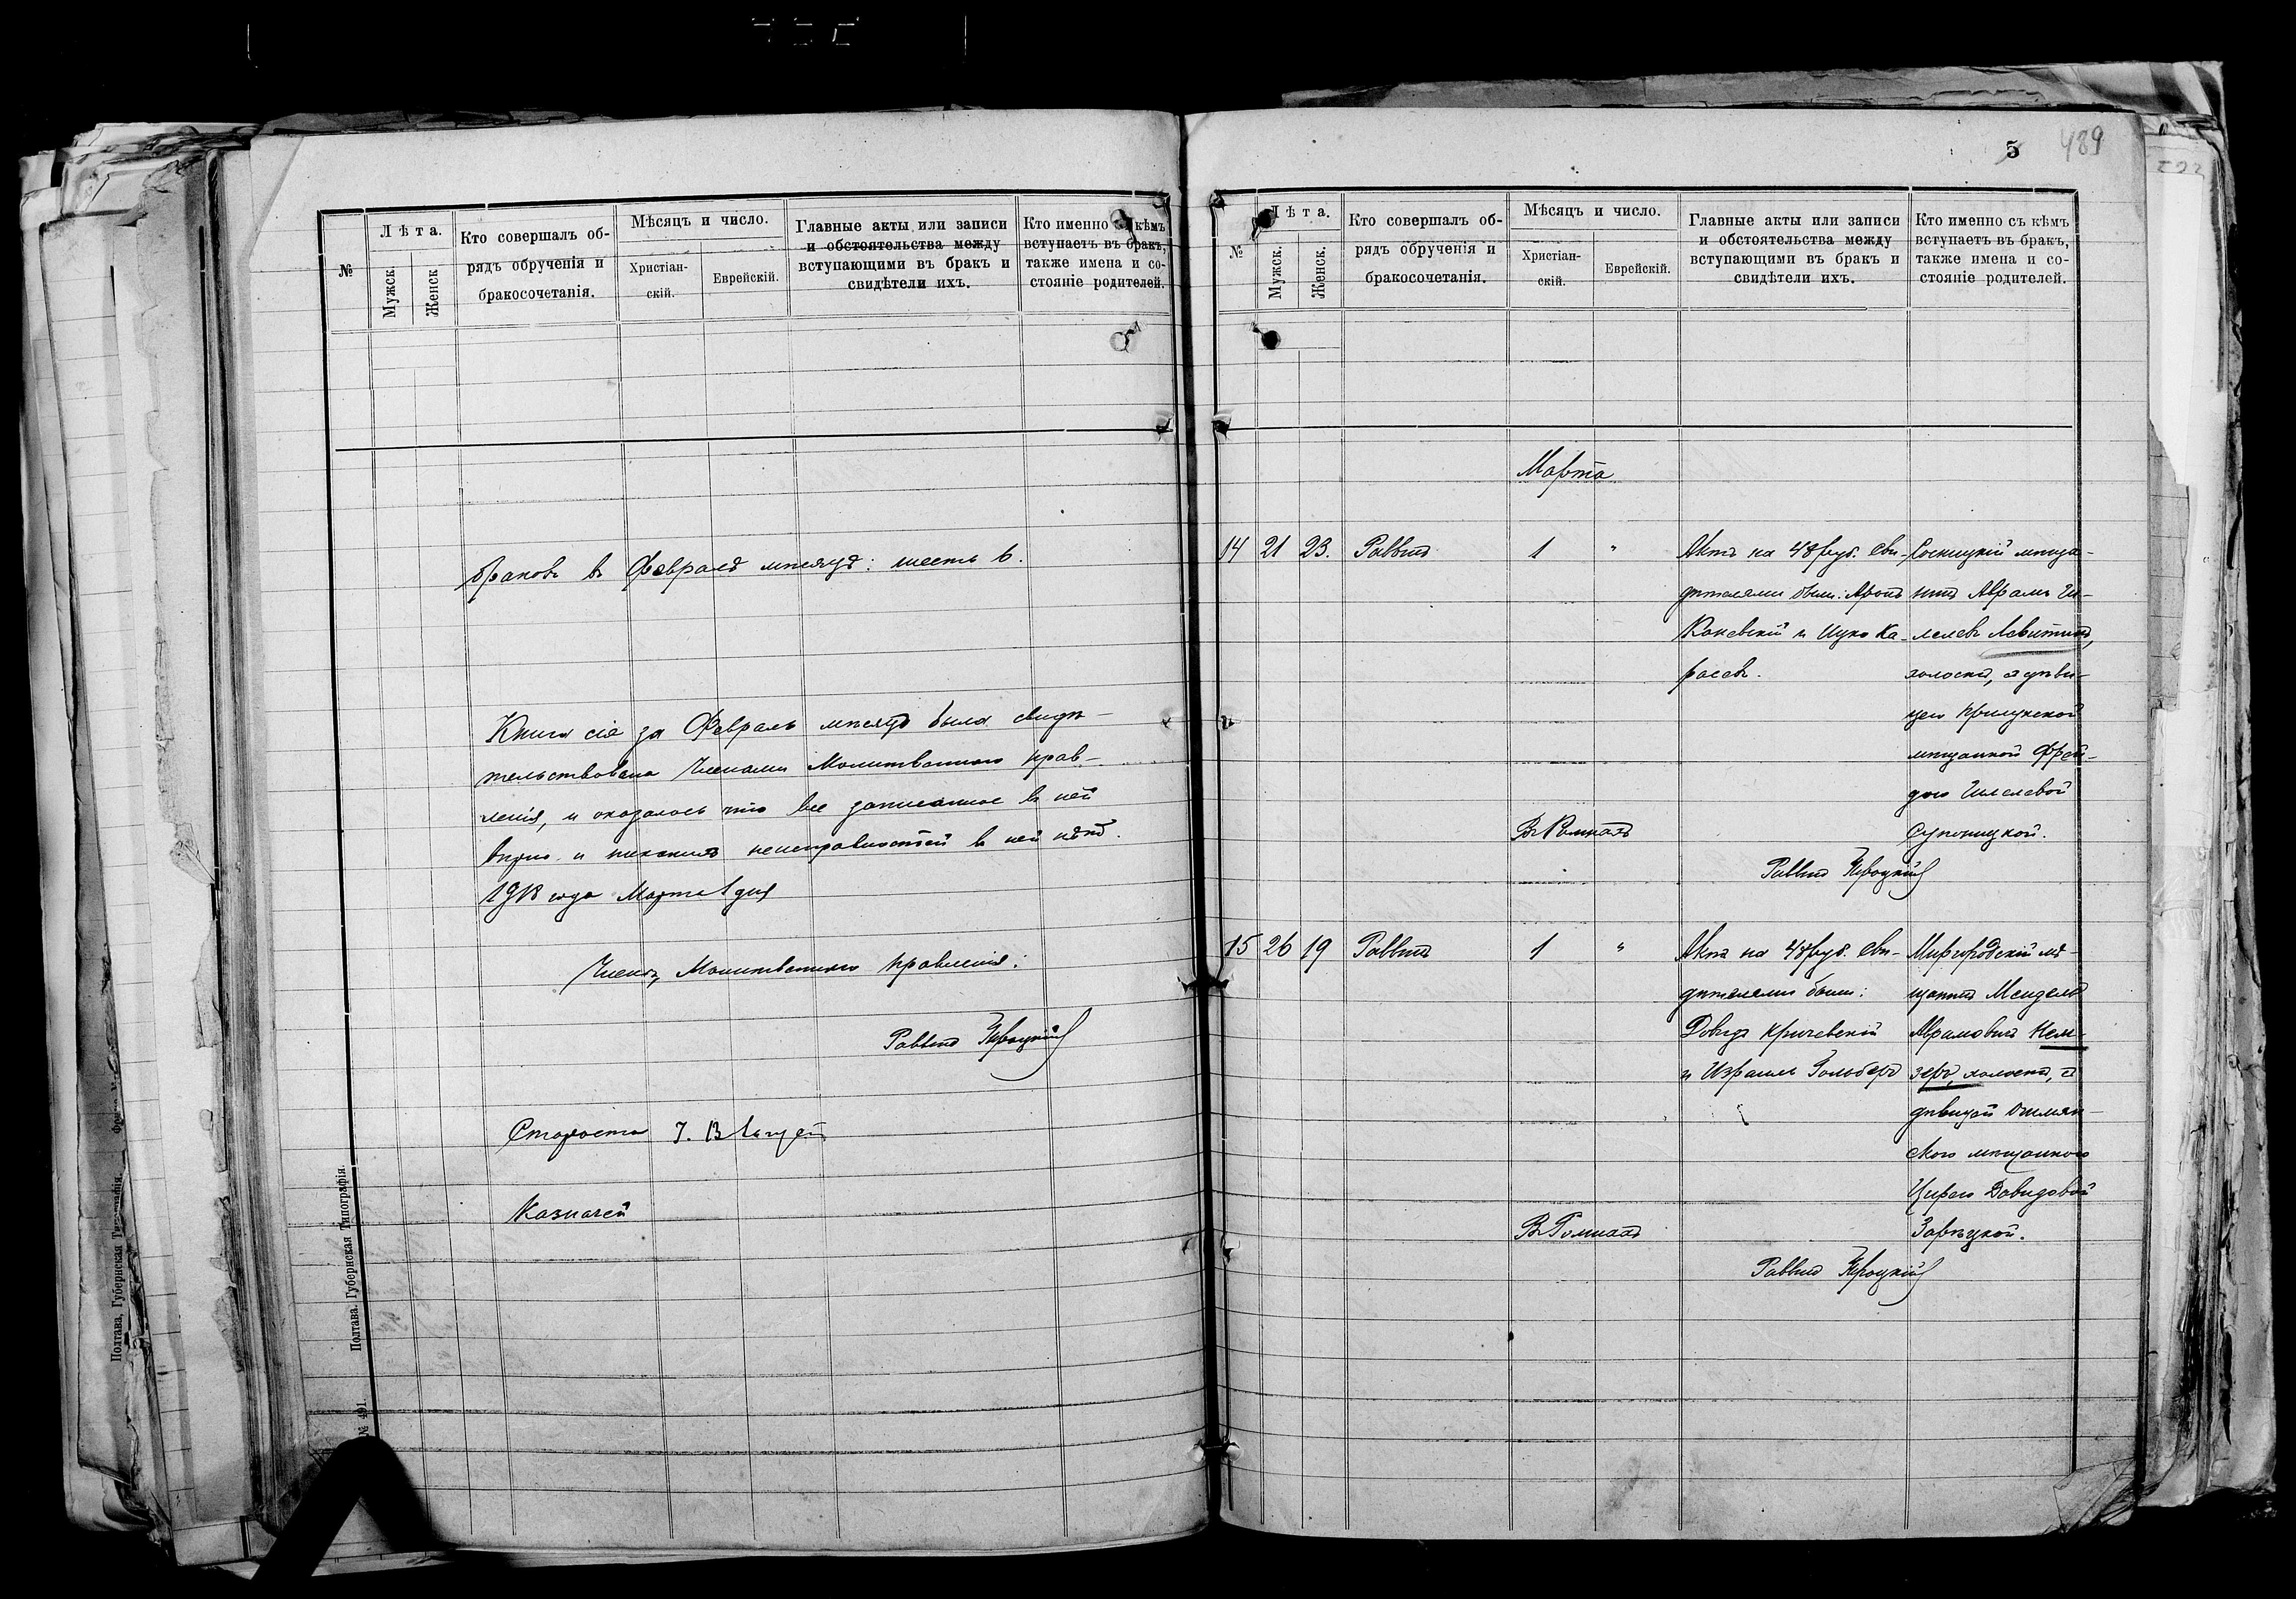 №
Лѣта.
Мужск.
Женск
Кто совершалъ об-
рядъ обрученія и
бракосочетанія.
Мѣсяцъ и число.
Христіан-
скій.
Еврейскій.
Главные акты или записи
и обстоятельства между
вступающими въ бракъ и
свидѣтели ихъ.
Кто именно съ кѣмъ
вступаетъ въ бракъ,
также имена и со-
стояніе родителей.
браковъ въ Февралѣ мѣсяцѣ: шесть 6.
Книга сія за Февраль мѣсяцъ была свидѣ-
тельствована Членами Молитвеннаго прав-
ленія, и оказалось что все записанное въ ней
вѣрно и никакихъ неисправностей въ ней нѣтъ.
1918 года Марта 1 дня
Члены Молитвеннаго правленія:
Раввинъ
Староста
Казначей
Полтава. Губернская Типографія.
№ 491.
Полтава, Губернская Типографія.
5 489
№
Лѣта.
Мужск.
Женск.
Кто совершалъ об-
рядъ обрученія и
бракосочетанія.
Мѣсяцъ и число.
Христіан-
скій.
Еврейскій.
Главные акты или записи
и обстоятельства между
вступающими въ бракъ и
свидѣтели ихъ.
Кто именно съ кѣмъ
вступаетъ въ бракъ,
также имена и со-
стояніе родителей.
Марта
14 21 23. Раввинъ 1 "
Актъ на 48 руб. Сви-
дѣтелями были: Аронъ
Каневскій и Ицко Ка-
расевъ.
Сосницкій мѣща-
нинъ Аврамъ Ги-
лелевъ Левитинъ,
холостъ, съ дѣви-
цею Прилукской
мѣщанкой Фрей-
дою Гилелевой
Супоницкой.
Въ Ромнахъ
Раввинъ
15 26 19 Раввинъ 1 "
Актъ на 48 руб. Сви-
дѣтелями были:
Довидъ Кричевскій
и Израиль Гольберг
Миргородскій мѣ-
щанинъ Мендель
Аврамовичъ Кел-
зеръ, холостъ, съ
дѣвицей Ошмян-
ской мѣщанкою
Цирею Давидовой
Зарѣцкой.
Въ Ромнахъ
Раввинъ